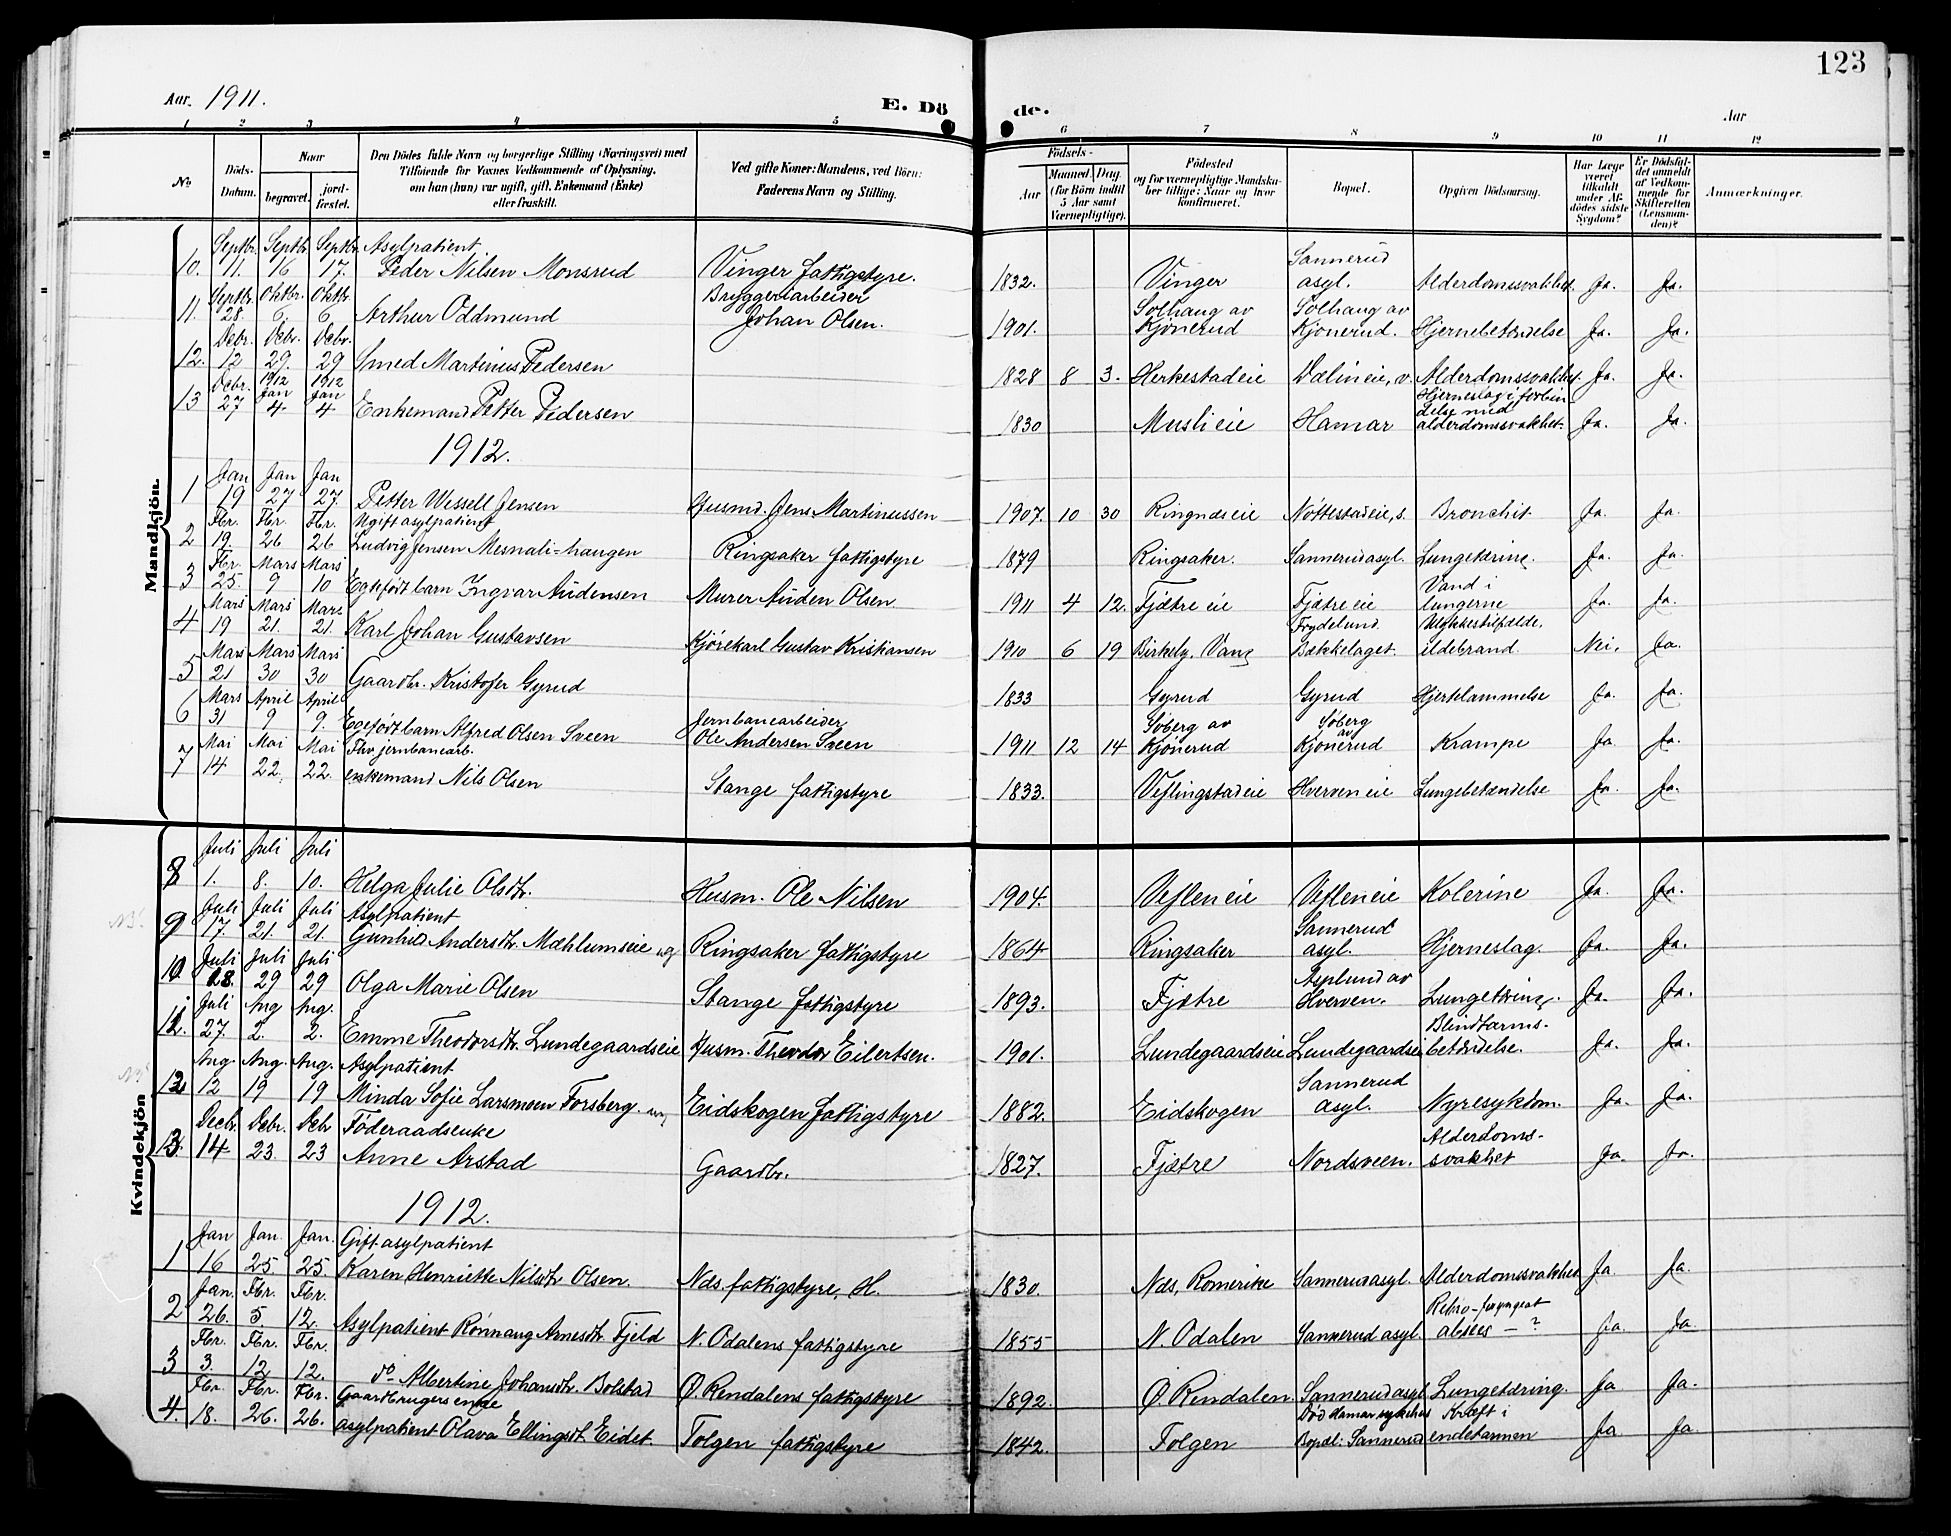 123
Aar 1911. E. Dö de. Aar
1 2 3 4 5 6 7 8 9 10 11 12
No. Döds-Datum. Naar begravet. jord-fæstet. Den Dödes fulde Navn og borgerlige Stilling (Næringsvei) med Tilföiende for Voxnes Vedkommende af Oplysning, om han (hun) var ugift, gift, Enkemand (Enke) eller fraskilt. Ved gifte Koner: Mandens, ved Börn: Faderens Navn og Stilling. Födsels- Aar Maaned Dag (for Börn indtil 5 Aar samt Værnepligtige). Födested og for værnepligtige Mandskaber tillige: Naar og hvor konfirmeret. Bopæl. Opgiven Dödsaarsag. Har Læge været tilkaldt under Afdödes sidste Sygdom? Er Dödsfaldet anmeldt af Vedkommende for Skifteretten (Lensmanden)? Anmærkninger.
Mandkjön.
10. Septbr. 11. Septbr. 16 Septbr. 17. Asylpatient Peder Nilsen Monsrud Vinger fattigstyre. 1832. Vinger Sannerud asyl. Alderdomssvakhet Ja. Ja.
11. Septbr. 28. Oktbr. 6. Oktbr. 6 Arthur Oddmund Bryggeriarbeider Johan Olsen. 1901. Solhaug av Kjonerud Solhaug av Kjonerud. Hjernebetændelse Ja. Ja.
12. Debr. 12 Debr. 29. Debr. 29 Smed Martinus Pedersen 1828 8 3. Herkestadeie Dælineie, v. Alderdomssvakhet. Ja. Ja.
13 Debr. 27 1912 Jan 4. 1912 Jan 4 Enkemand Petter Pedersen 1830 Muslieie Hamar Hjerneslag i forbindelse med alderdomssvakhet. Ja. Ja.
1912.
1 Jan 19 Jan 27 Jan 27. Petter Wessell Jensen Husmd. Jens Martinussen 1907. 10 30 Ringnæseie Nøttestadeie, s. Bronchit Ja. Ja.
2 Fbr. 19. Fbr. 26 Fbr. 26 Ugift asylpatient Ludvig Jensen Mesnali=haugen Ringsaker fattigstyre 1879 Ringsaker. Sannerud asyl. Lungetæring. Ja. Ja.
3 Fbr. 25. Mars 9 Mars 10 Egtefødt barn Ingvar Audensen Murer Auden Olsen 1911 4 12. Fjætre eie Fjætre eie Vand i lungerne Ja. Ja.
4 Mars 19 Mars 21. Mars 21. Karl Johan Gustavsen Kjørekarl Gustav Kristiansen 1910 6 19 Birkely, Vang Frydelund Bækkelaget. Ulykkestilfælde, ildebrand. Nei. Ja.
5 Mars 21 Mars 30 Mars 30 Gaardbr. Kristofer Gyrud 1833 Gyrud Gyrud Hjertelammelse Ja. Ja.
6 Mars 31 April 9 April 9. Egtefødt barn Alfred Olsen Sveen Jernbanearbeider Ole Andersen Sveen 1911 12 14 Søberg av Kjonerud Søberg av Kjonerud Krampe Ja Ja.
7 Mai 14 Mai 22. Mai 22. Fhv. jernbanearb. enkemand Nils Olsen Stange fattigstyre 1833. Veflingstadeie Hverveneie Lungebetændelse Ja. Ja.
Kvindekjön
8 Juli 1. Juli 8. Juli 10. Helga Julie Olsdtr. Husm. Ole Nilsen 1904. Vefleneie Vefleneie Kolerine Ja. Ja.
9 Juli 17. Juli 21. Juli 21. Asylpatient Gunhild Andersdtr. Mæhlumseie ug Ringsaker fattigstyre 1864 Ringsaker Sannerud asyl. Hjerneslag. Ja. Ja.
10 Juli 28. Juli 29 Juli 29 Olga Marie Olsen Stange fattigstyre 1893. Fjætre Asplund av Hverven. Lungetæring. Ja. Ja.
11. Juli 27. Aug 2. Aug. 2. Emme Theodorsdtr. Lundegaardseie Husm. Theodor Eilertsen. 1901. Lundegaardseie Lundegaardseie Blindtarmsbetændelse. Ja. Ja.
12 Aug. 12 Aug. 19 Aug. 19 Asylpatient Minda Sofie Larsmoen Forsberg. ug. Eidskogen fattigstyre 1882. Eidskogen Sannerud asyl. Nyresykdom. Ja. Ja.
13. Decbr. 14 Debr. 23. Debr 23 Föderaadsenke Anne Arstad Gaardbr. 1827. Fjætre Nordsveen. Alderdoms-svakhet Ja. Ja.
1912.
1 Jan 16 Jan. 25 Jan. 25. Gift asylpatient Karen Henriette Nilsdtr Olsen. Nds. fattigstyre, H. 1830. Nds, Romerike Sannerud asyl. Alderdomssvakhet Ja Ja.
2 Jan. 26. Fbr. 5 Fbr. 12. Asylpatient Rønnaug Arnesdtr. Fjeld N. Odalens fattigstyre 1855 N. Odalen Sannerud asyl absces - ? Ja. Ja.
3 Fbr. 3. Fbr. 12 Fbr. 12. do Albertine Johansdtr. Bolstad Ø. Rendalens fattigstyre 1892. Ø. Rendalen. Sannerud asyl Lungetæring. Ja Ja.
4. Fbr. 18. Fbr. 26. Fbr. 26. Gaardbrugers enke asylpatient Olava Ellingsdtr. Eidet. Tolgen fattigstyre 1842. Tolgen Död Hamar sykehus Bopæl: Sannerud Kræft i endetarmen Ja Ja.